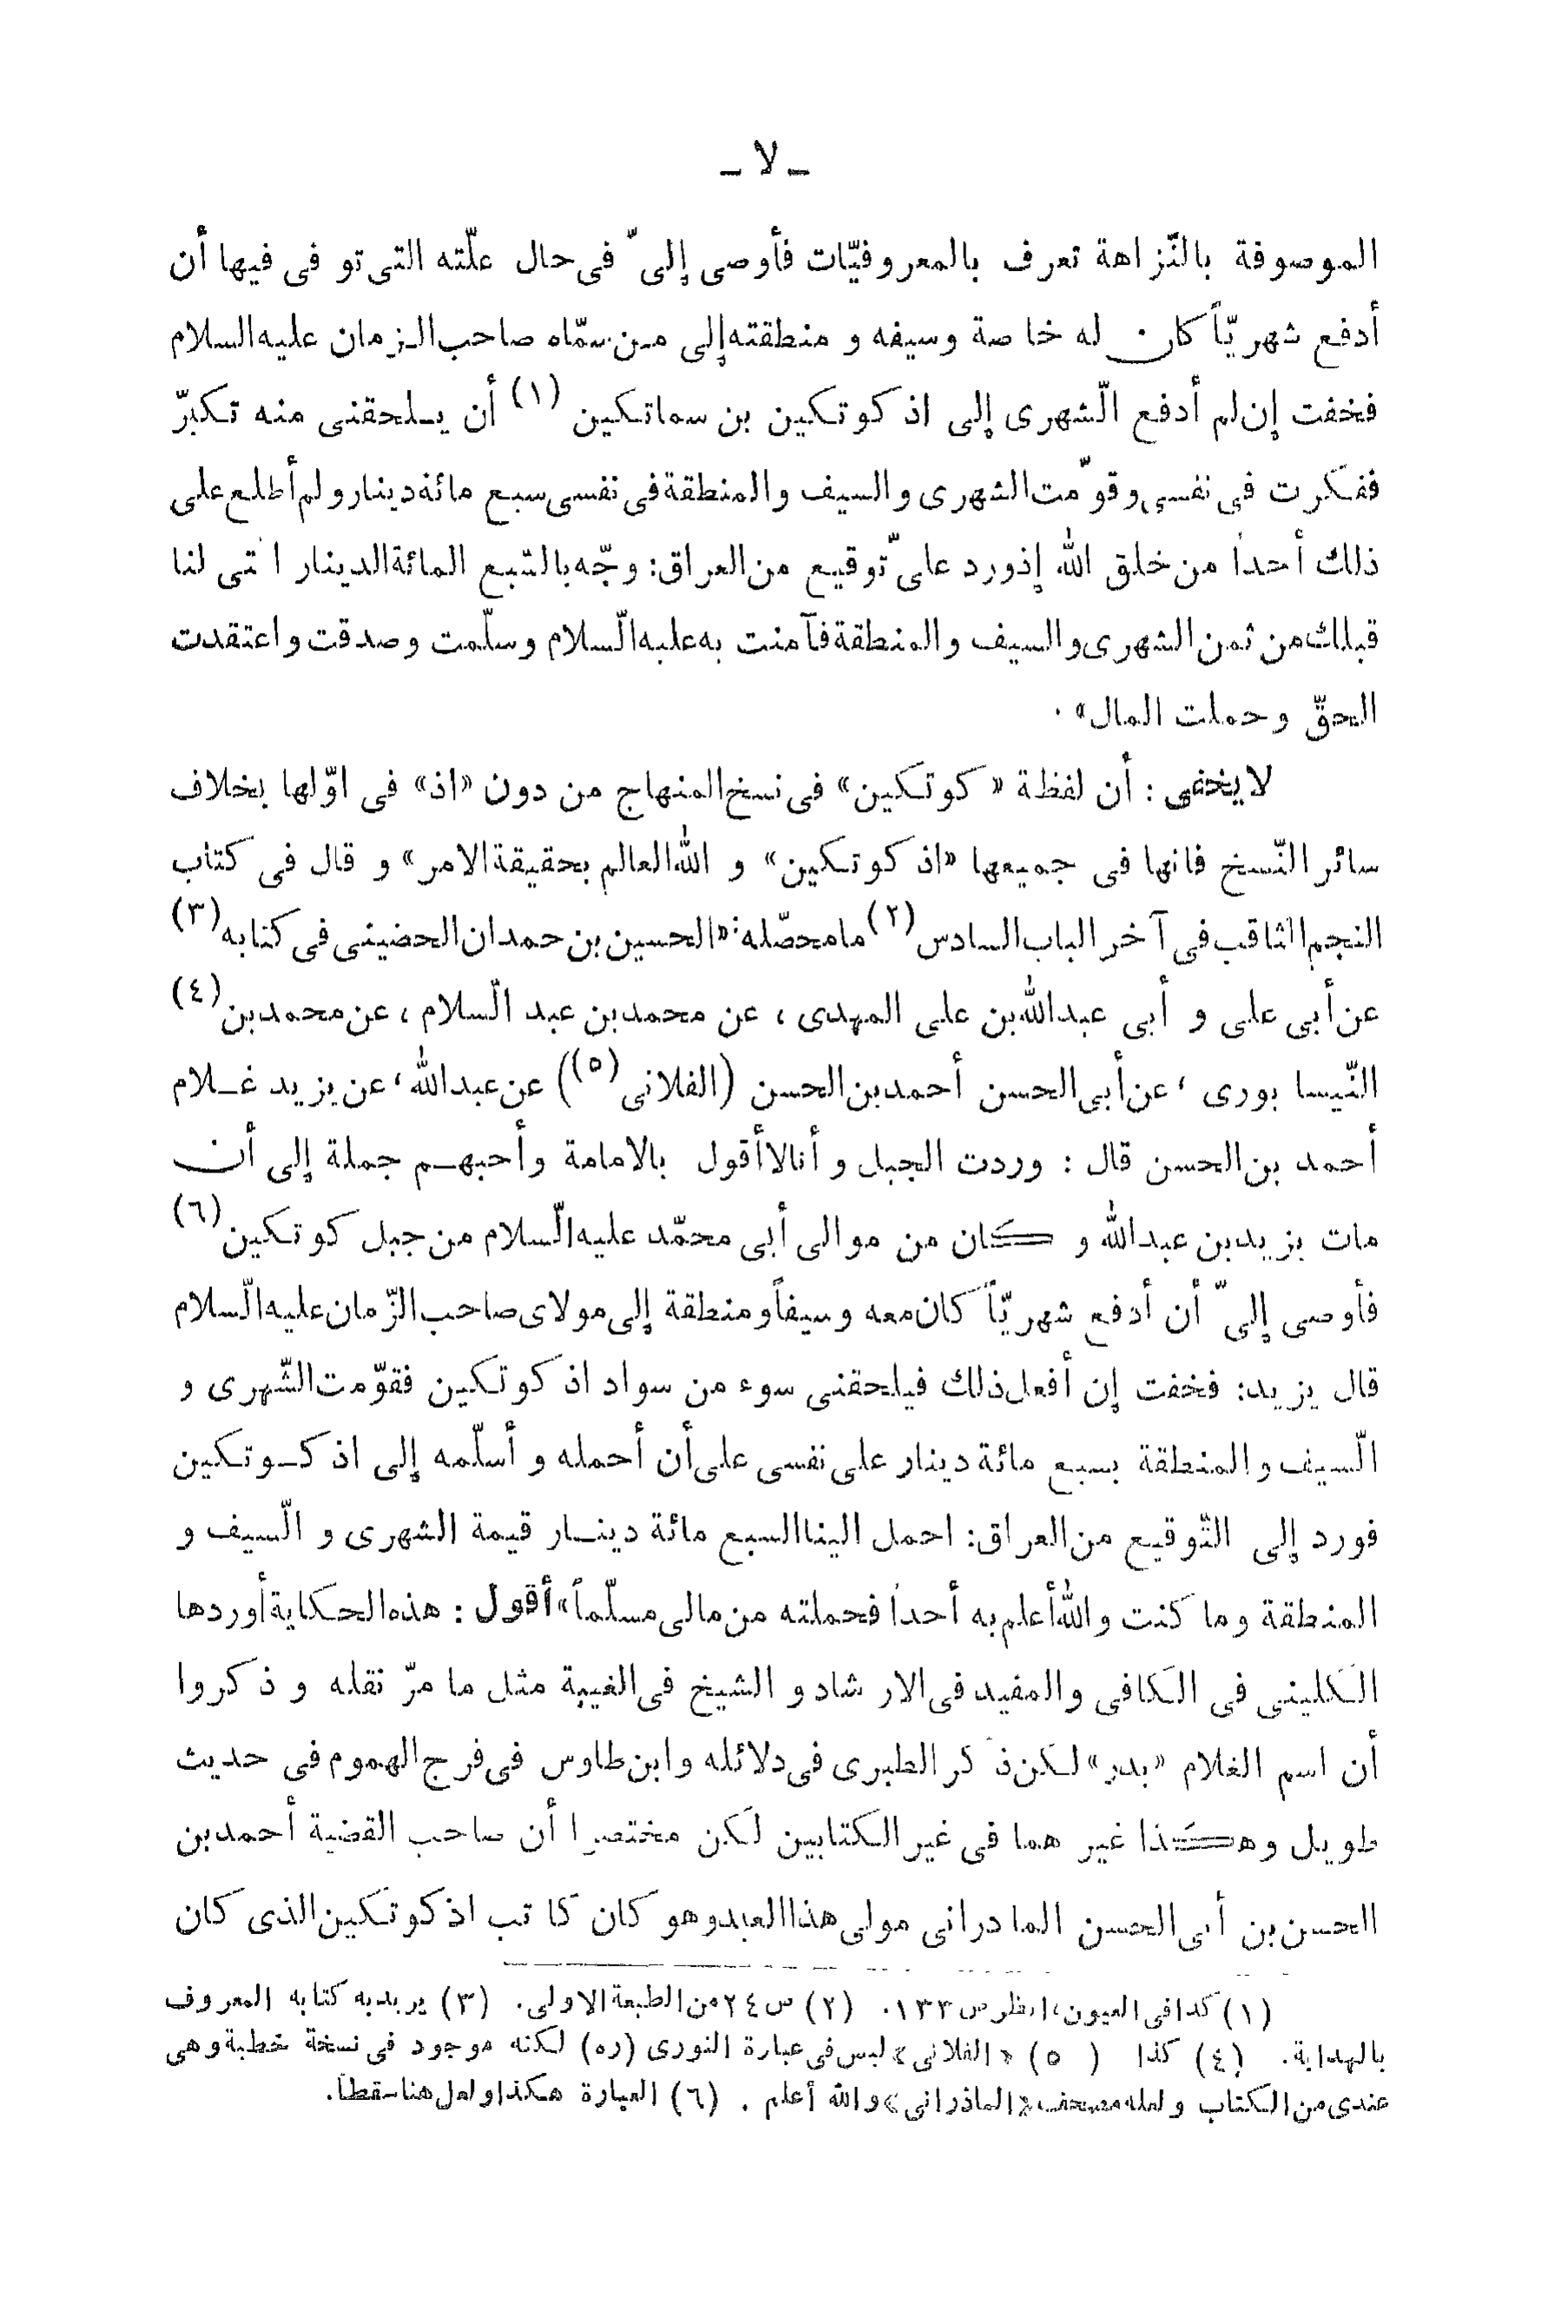 ـ لا ـ
الموصوفة بالنّزاهة تعرف بالمعروفيّات فأوصى إلىّ فى حال علّته التى توفى فيها أن
أدفع شهريّاً كان له خاصة وسيفه و منطقته إلى من سمّاه صاحب الزمان عليه السلام
فخفت إن لم أدفع الّشهرى إلى اذ كوتكين بن سماتكين (١) أن يلحقنى منه تكبرّ
ففكرت فى نفسى وقوّمت الشهرى و السيف والمنطقة فى نفسى سبع مائة دينار و لم أطلع على
ذلك أحداً من خلق الله إذورد علىّ توقيع من العراق: وجّه بالسّبع المائة الدينار التى لنا
قبلك من ثمن الشهرى و السيف و المنطقة فآمنت به عليه الّسلام و سلّمت و صدقت و اعتقدت
الحقّ و حملت المال» .
لا يخفى : أن لفظة « كوتكين» فى نسخ المنهاج من دون «اذ» فى اوّلها بخلاف
سائر النّسخ فانها فى جميعها «اذ كوتكين» و الله العالم بحقيقة الامر» و قال فى كتاب
النجم الثاقب فى آخر الباب السادس (٢) ما محصّله: «الحسين بن حمدان الحضينى فى كتابه (٣)
عن أبى على و أبى عبدالله بن على المهدى ، عن محمد بن عبد الّسلام ، عن محمد بن (٤)
النّيسا بورى ، عن أبى الحسن أحمد بن الحسن (الفلانى (٥)) عن عبدالله ، عن يزيد غـلام
أحمد بن الحسن قال : وردت الجبل و أنا لا أقول بالامامة وأحبهـم جملة إلى أن
مات يزيد بن عبدالله و كان من موالى أبى محمّد عليه الّسلام من جبل كوتكين (٦)
فأوصى إلىّ أن أدفع شهريّاً كان معه وسيفاً و منطقة إلى مولاى صاحب الزّمان عليه الّسلام
قال يزيد: فخفت إن أفعل ذلك فيلحقنى سوء من سواد اذ كوتكين فقوّمت الشّهرى و
الّسيف و المنطقة بسبع مائة دينار على نفسى على أن أحمله و أسلّمه إلى اذ كـوتكين
فورد إلى التّوقيع من العراق: احمل الينا السبع مائة دينـار قيمة الشهرى و الّسيف و
المنطقة وما كنت والله أعلم به أحداً فحملته من مالى مسلّماً» أقول : هذه الحكاية أوردها
الكلينى فى الكافى والمفيد فى الارشاد و الشيخ فى الغيبة مثل ما مرّ نقله و ذكروا
أن اسم الغلام «بدر» لكن ذكر الطبرى فى دلائله و ابن طاوس فى فرج الهموم فى حديث
طويل وهكذا غير هما فى غير الكتابين لكن مختصرا أن صاحب القضية أحمد بن
الحسن بن أبى الحسن المادرانى مولى هذا العبد و هو كان كاتب اذ كوتكين الذى كان
(١) كذا فى العيون، انظر ص ١٣٣. (٢) س ٢٤ من الطبعة الاولى. (٣) يريد به كتابه المعروف
بالهداية. (٤) كذا ( ٥ ) «الفلانى» ليس فى عبارة النورى (ره) لكنه موجود فى نسخة خطية وهى
عندى من الكتاب و لعله مصحف «الماذرانى» و الله أعلم . (٦) العبارة هكذا و لعل هنا سقطاً.